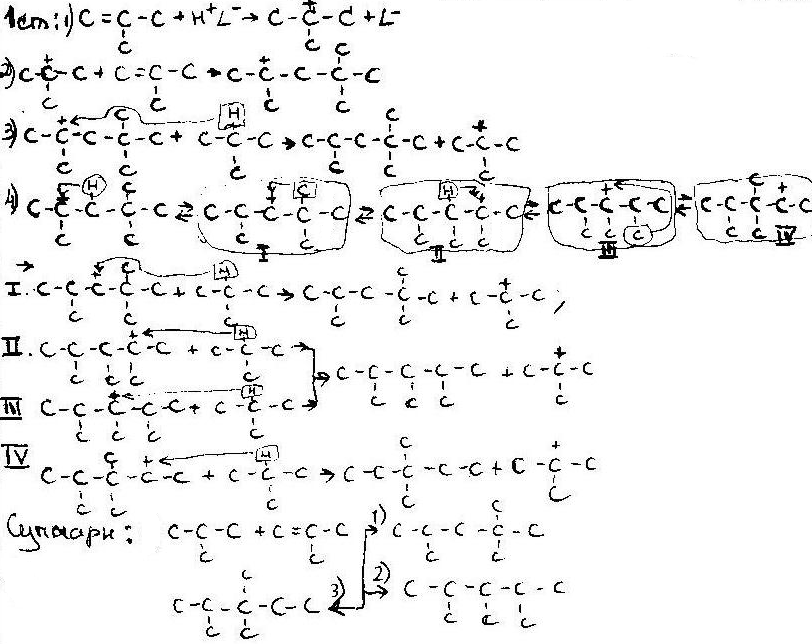 1 ст: 1) C=C-C + H⁺L⁻ → C-C-C + L⁻
2) C-C-C + C=C-C → C-C-C-C-C
3) C-C-C-C-C + C-C-C → C-C-C-C-C + C-C-C
4) C-C-C-C-C ⇄ C-C-C-C-C ⇄ C-C-C-C-C ⇄ C-C-C-C-C ⇄ C-C-C-C-C
I II III IV
I. C-C-C-C-C + C-C-C → C-C-C-C-C + C-C-C,
II. C-C-C-C-C + C-C-C →
C-C-C-C-C + C-C-C
III C-C-C-C-C + C-C-C →
IV C-C-C-C-C + C-C-C → C-C-C-C-C + C-C-C
Суммарн: C-C-C + C=C-C 1) C-C-C-C-C
C-C-C-C-C 3) 2) C-C-C-C-C